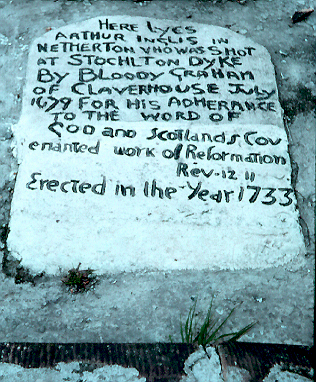 HERE LYES
ARTHUR INGLIS IN
NETHERTON VHO WAS SHOT
AT STOCHLTON DYKE
BY BLOODY GRAHAM
OF CLAVERHOUSE JULY
1679 FOR HIS ADHERANCE
TO THE WORD OF
GOD and Scotlands Cov
enanted work of Reformation
Rev-12 11
Erected in the Year 1733